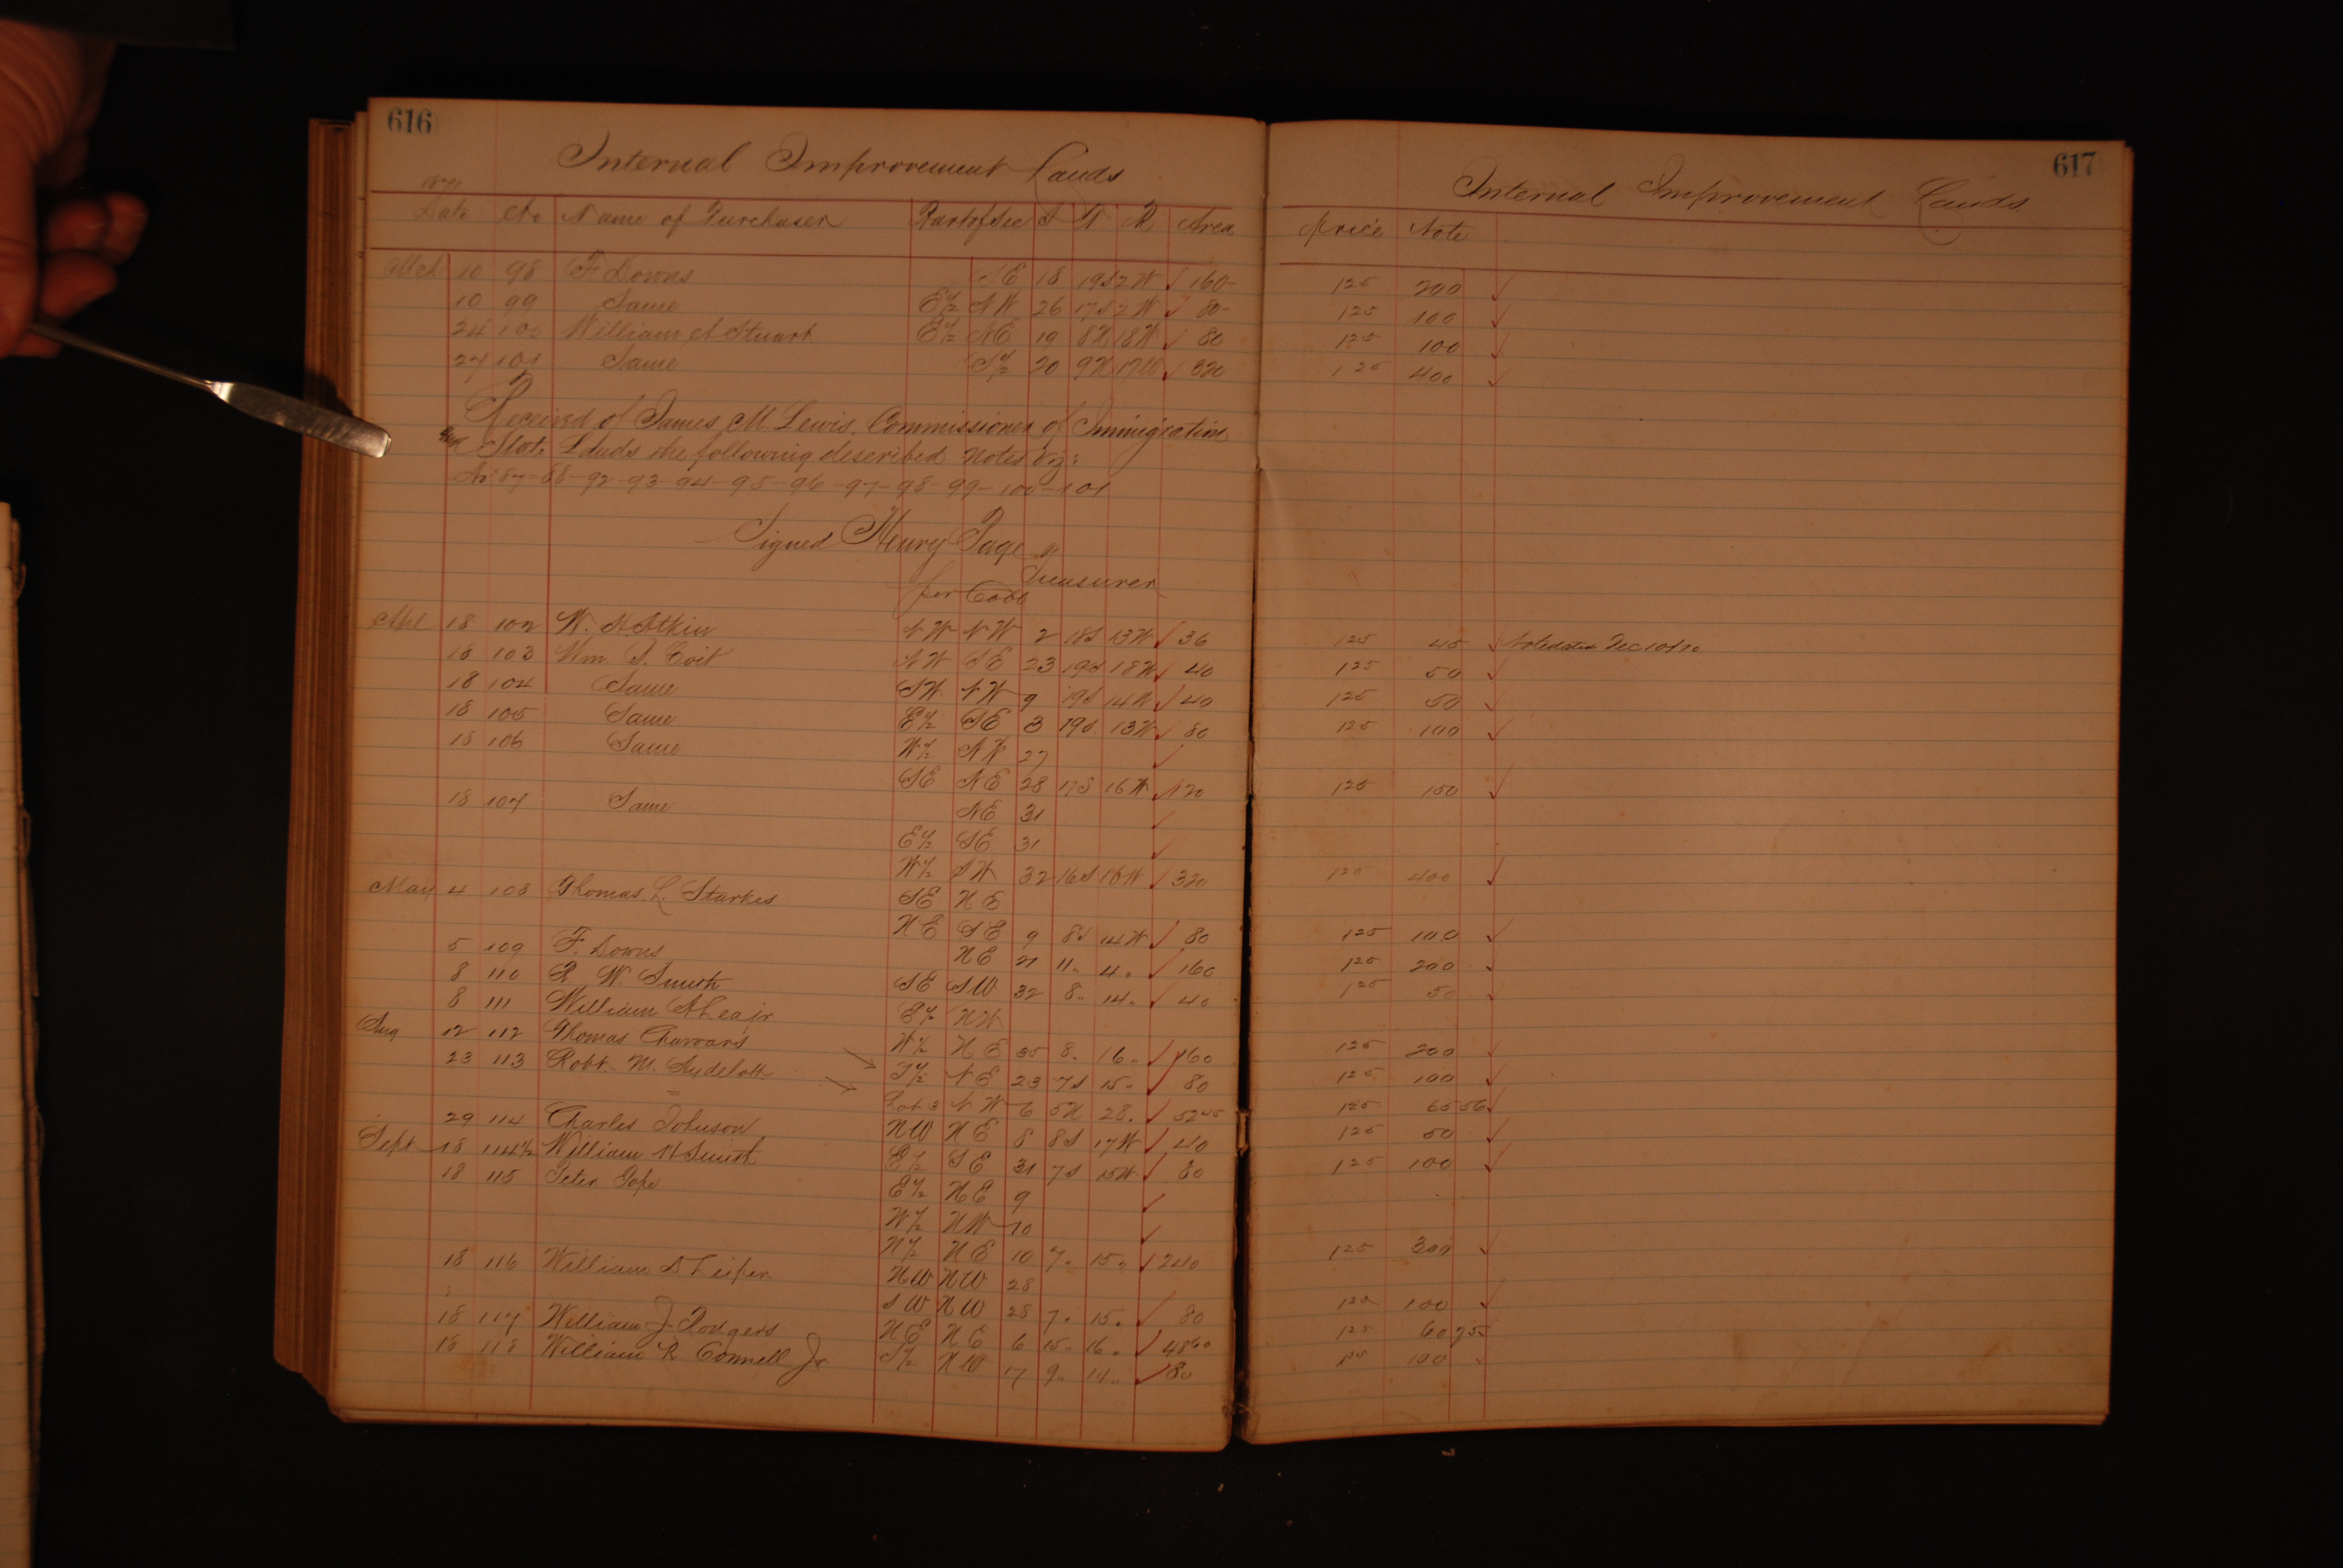 616
Internal Improvement Lands
1871
Date No Name of Purchaser Part of Sec S T R Area
Mch 10 98 F. Downs NE 18 19S 2W ✓ 160-
10 99 Same E½ NW 26 17S 2W ✓ 80-
24 100 William A Stuart E½ NE 19 8N 18W ✓ 80
27 101 Same S½ 20 9N 17W ✓ 320
Received of James M Lewis. Commissioner of Immigration
and State Lands the following described notes viz:
No 87-88-92-93-94-95-96-97-98-99-100-101
Signed Henry Page
Treasurer
per Cobb
Apl 18 102 W. N. Atkin NW NW 2 18S 13W ✓ 36
18 103 Wm. S. Coit NW SE 23 19S 18W ✓ 40
18 104 Same SW NW 9 19S 14W ✓ 40
18 105 Same E½ SE 3 19S 13W ✓ 80
18 106 Same W½ NW 27 ✓
SE NE 28 17S 16W ✓ 120
18 107 Same NE 31 ✓
E½ SE 31 ✓
W½ SW 32 16S 16W ✓ 320
May 4 108 Thomas L. Starkes SE NE
NE SE 9 8S 14W ✓ 80
5 109 F. Downs NE 21 11" 4" ✓ 160
8 110 R W. Smith SE SW 32 8" 14" ✓ 40
8 111 William A Lea jr E½ NW
Aug 12 112 Thomas W½ NE 35 8" 16" ✓ 160
23 113 Robt. M. Aydelott S½ NE 23 7S 15" ✓ 80
Lot 3 NW 6 5N 28" ✓ 52 45
29 114 Charles Johnson NW NE 8 8S 17W ✓ 40
Sept 18 114½ William H Smith E½ SE 31 7S 15W ✓ 80
18 115 Peter Pope E½ NE 9 ✓
W½ NW 10 ✓
N½ NE 10 7" 15" ✓ 240
18 116 William D Leiper NW NW 28
SW NW 28 7" 15" ✓ 80
18 117 William J. Rodgers NE NE 6 15" 16" ✓ 48 60
18 118 William R Connell Jr S½ NW 17 9" 14" ✓ 80
617
Internal Improvement Lands
Price Note
125 200 ✓
125 100 ✓
125 100 ✓
125 400 ✓
125 45 ✓ Note dated Dec 10/70
125 50 ✓
125 50 ✓
125 100 ✓
125 150 ✓
125 400 ✓
125 100 ✓
125 200 ✓
125 50 ✓
125 200 ✓
125 100 ✓
125 65 56 ✓
125 50 ✓
125 100 ✓
125 300 ✓
125 100 ✓
125 60 75 ✓
125 100 ✓